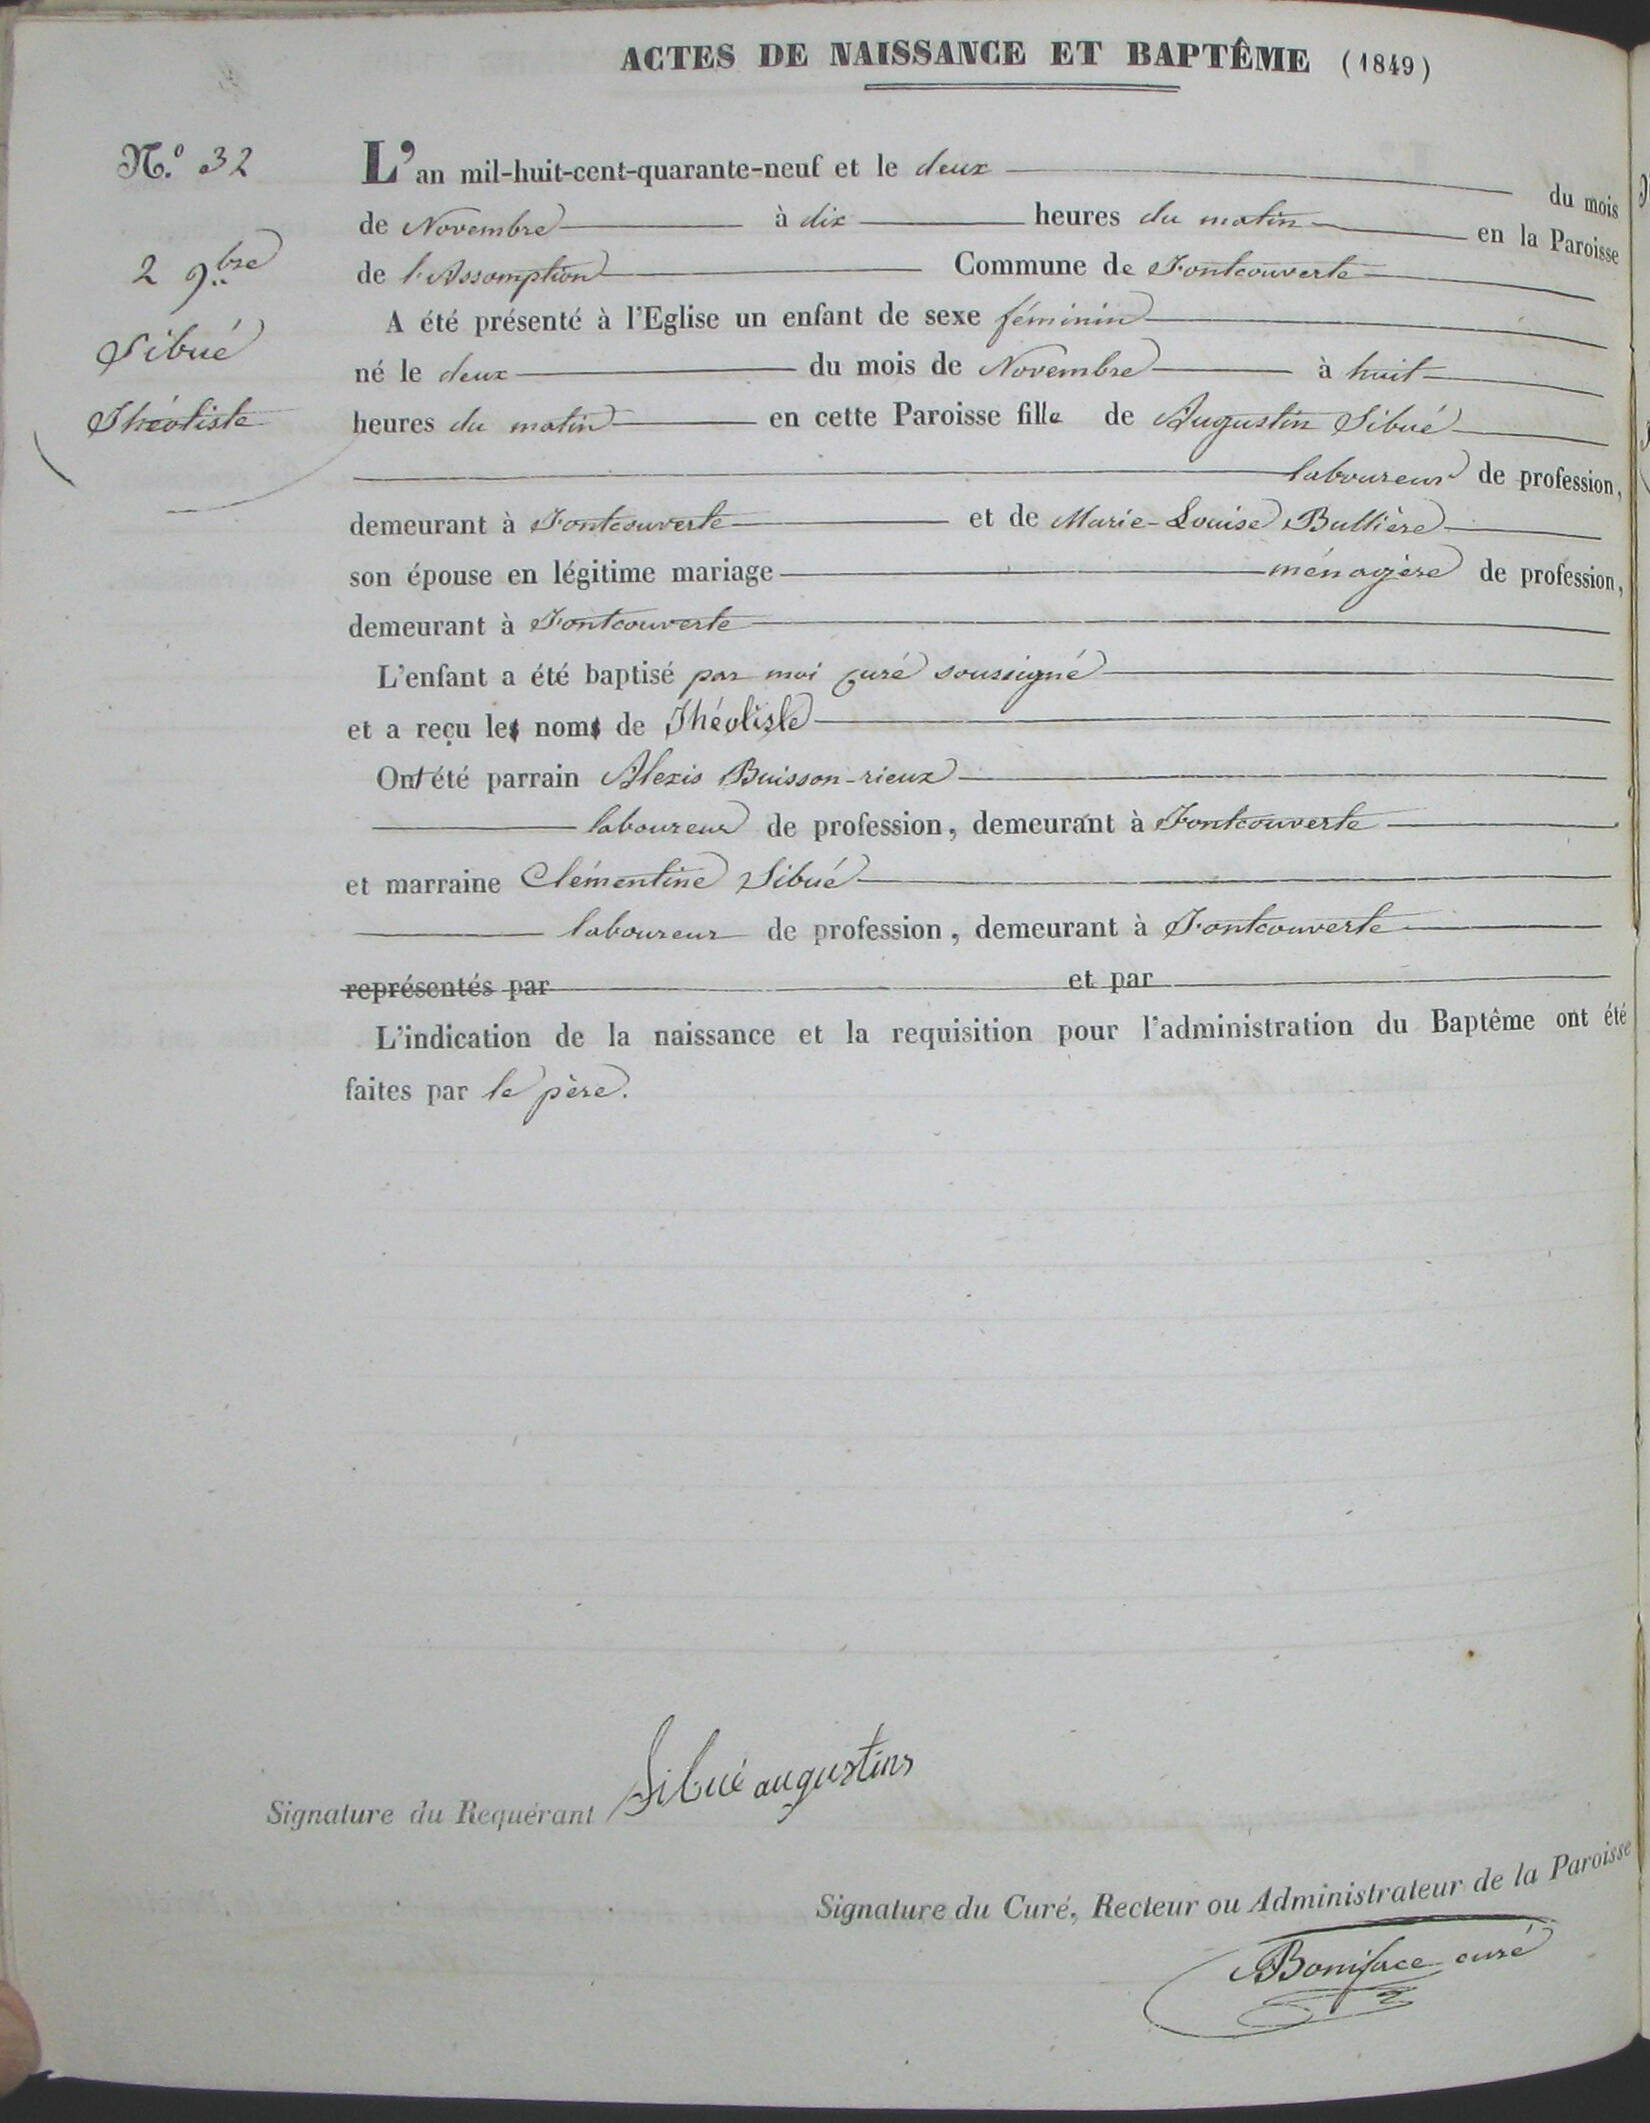 ACTES DE NAISSANCE ET BAPTÊME (1849)
N.º 32
2 9.bre
Sibué
Théotiste
L'an mil-huit-cent-quarante-neuf et le deux du mois
de Novembre à dix heures du matin en la Paroisse
de l'Assomption Commune de Fontcouverte
A été présenté à l'Eglise un enfant de sexe féminin
né le deux du mois de Novembre à huit
heures du matin en cette Paroisse fille de Augustin Sibué
laboureur de profession,
demeurant à Fontcouverte et de Marie-Louise Bullière
son épouse en légitime mariage ménagère de profession,
demeurant à Fontcouverte
L'enfant a été baptisé par moi curé soussigné
et a reçu les noms de Théotiste
Ont été parrain Alexis Buisson-rieux
laboureur de profession, demeurant à Fontcouverte
et marraine Clémentine Sibué
laboureur de profession, demeurant à Fontcouverte
représentés par et par
L'indication de la naissance et la requisition pour l'administration du Baptême ont été
faites par le père.
Signature du Requérant Sibué augustins
Signature du Curé, Recteur ou Administrateur de la Paroisse
Boniface curé